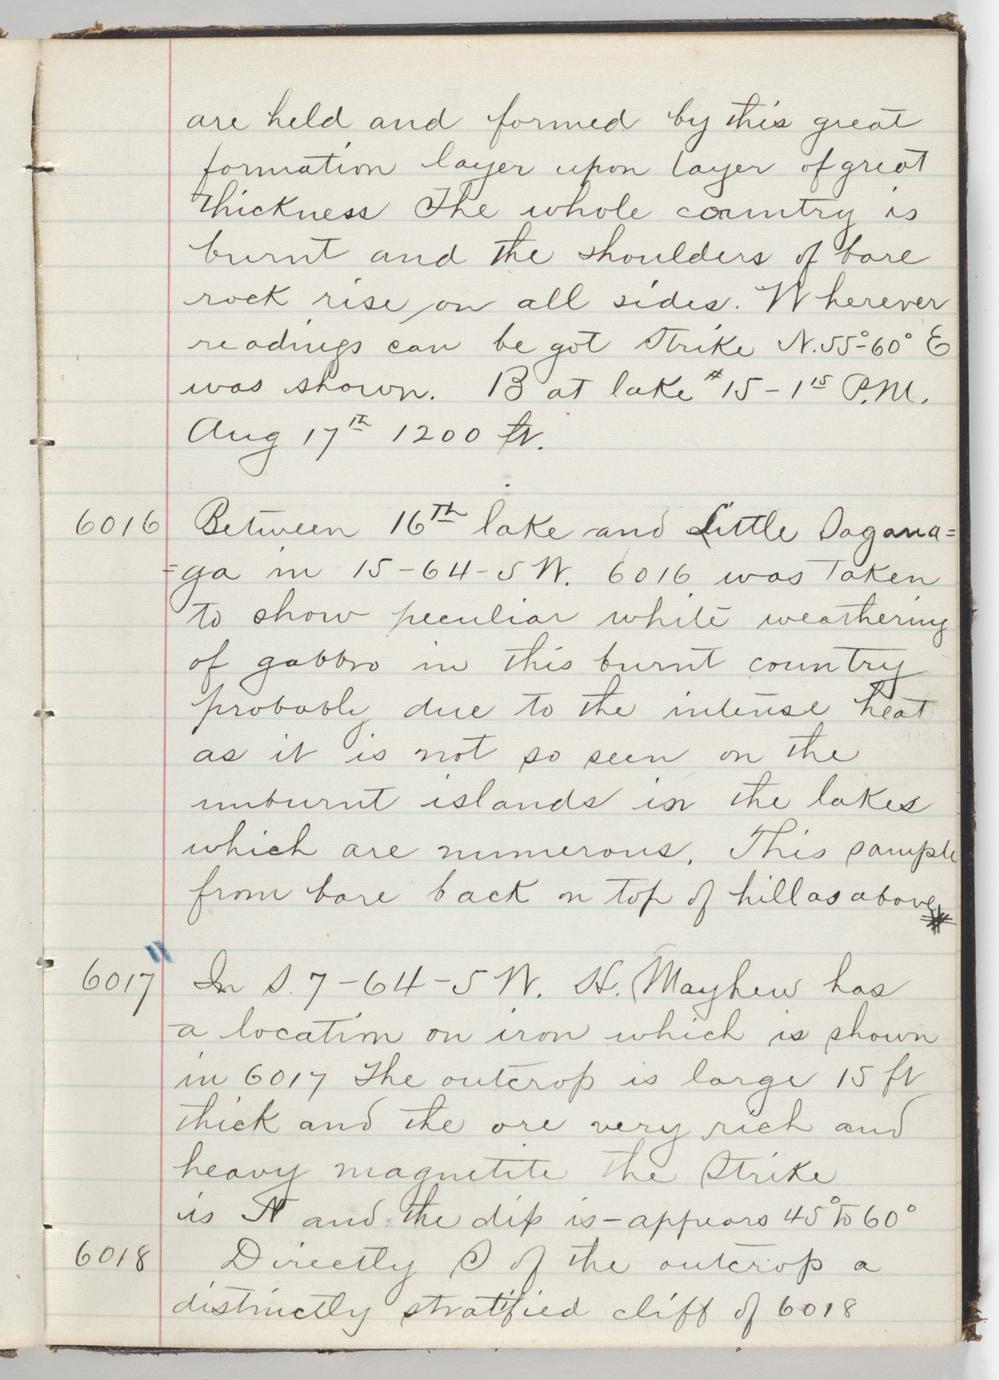 are held and formed by this great
formation layer upon layer of great
thickness The whole country is
burnt and the shoulders of bare
rock rise on all sides. Wherever
readings can be got strike N.55°-60° E
was shown. B at lake #15-1 15 P.M.
Aug 17th 1200 ft.
6016 Between 16th lake and Little Sagana=
=ga in 15-64-5W. 6016 was taken
to show peculiar white weathering
of gabbro in this burnt country
probably due to the intense heat
as it is not so seen on the
unburnt islands in the lakes
which are numerous. This sample
from bare back on top of hill as above
6017 " In S. 7-64-5W. H. Mayhew has
a location on iron which is shown
in 6017 The outcrop is large 15 ft
thick and the ore very rich and
heavy magnetite the strike
is N and the dip is - appears 45° to 60°
6018 Directly S of the outcrop a
distinctly stratified cliff of 6018